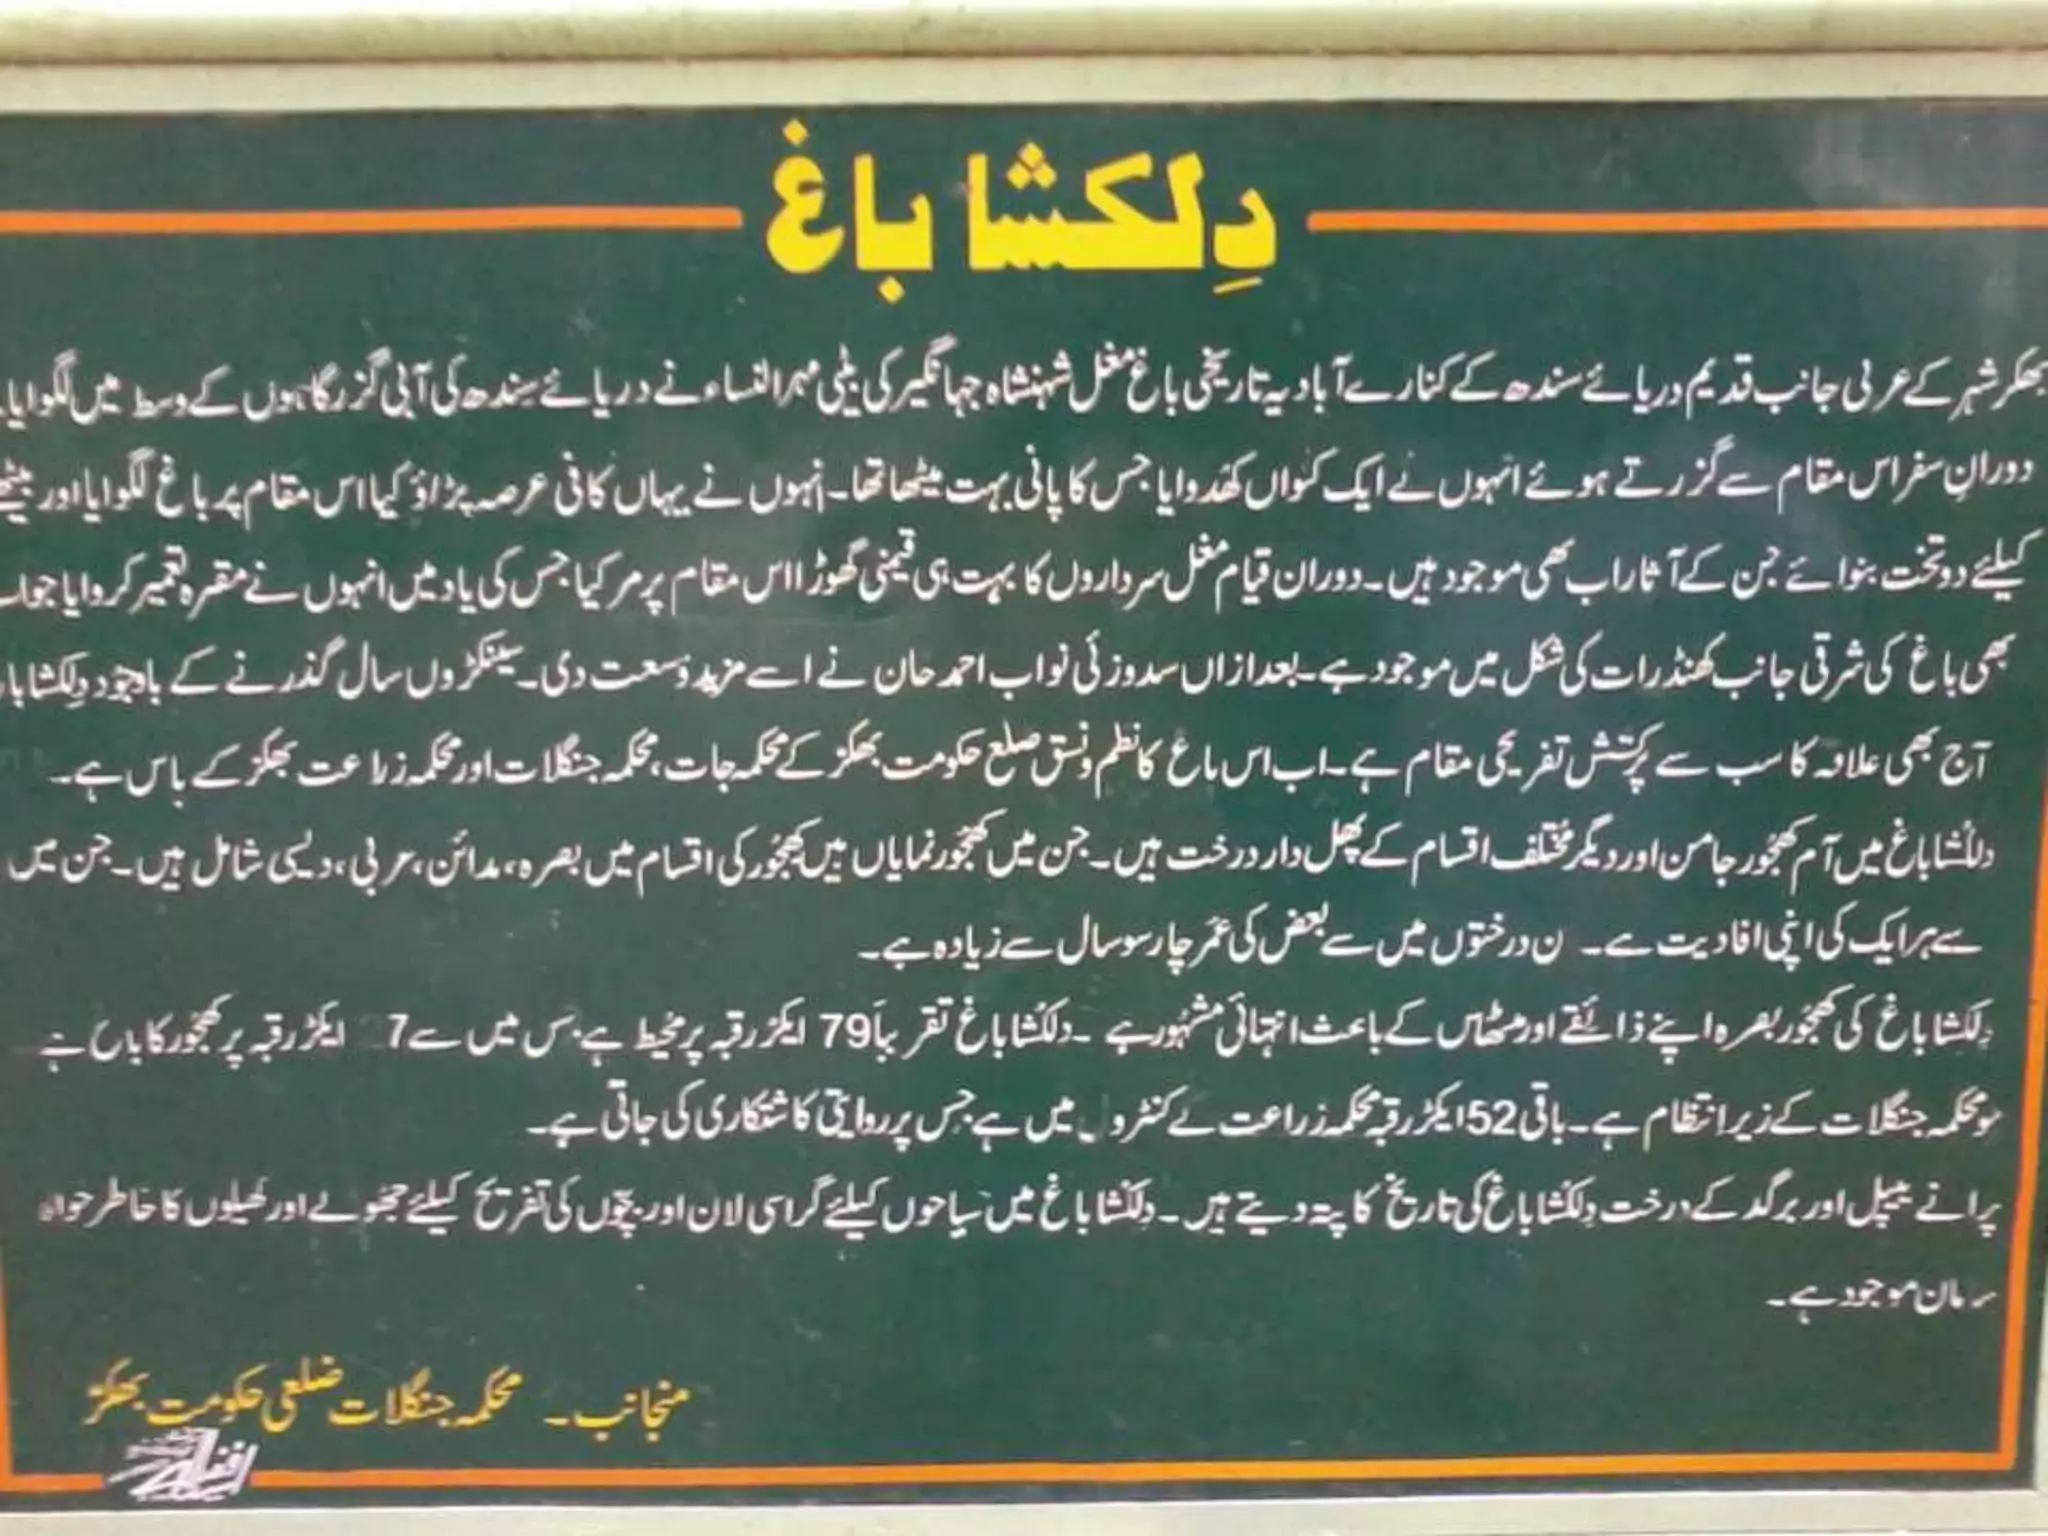 دِلکشا باغ
بھکر شہر کے عربی جانب قدیم دریائے سندھ کے کنارے آباد یہ تاریخی باغ مغل شہنشاہ جہانگیر کی بیٹی مہر النساء نے دریائے سندھ کی آبی گزرگاہوں کے وسط میں لگوایا۔
دورانِ سفر اس مقام سے گزرتے ہوئے انہوں نے ایک کنواں کھدوایا جس کا پانی بہت میٹھا تھا۔ انہوں نے یہاں کافی عرصہ پڑاؤ کیا اس مقام پر باغ لگوایا اور
کیلئے دو تخت بنوائے جن کے آثار اب بھی موجود ہیں۔ دوران قیام مغل سرداروں کا بہت ہی قیمتی گھوڑا اس مقام پر مر گیا جس کی یاد میں انہوں نے مقبرہ تعمیر کروایا
بھی باغ کی شرقی جانب کھنڈرات کی شکل میں موجود ہے۔ بعد ازاں سدوزئی نواب احمد خان نے اسے مزید وسعت دی۔ سینکڑوں سال گذرنے کے باوجود دِلکشا
آج بھی علاقہ کا سب سے پرکشش تفریحی مقام ہے۔ اب اس باغ کا نظم و نسق ضلع حکومت بھکر کے محکمہ جات، محکمہ جنگلات اور محکمہ زراعت بھکر کے پاس ہے۔
دلکشا باغ میں آم کھجور جامن اور دیگر مختلف اقسام کے پھل دار درخت ہیں۔ جن میں کھجور نمایاں ہیں کھجور کی اقسام میں بصرہ، مدائن، عربی، دیسی شامل ہیں۔ جن میں
سے ہر ایک کی اپنی افادیت ہے۔ ن درختوں میں سے بعض کی عمر چار سو سال سے زیادہ ہے۔
دِلکشا باغ کی کھجور بصرہ اپنے ذائقے اور مٹھاس کے باعث انتہائی مشہور ہے۔ دلکشا باغ تقریباً 79 ایکڑ رقبہ پر محیط ہے جس میں سے 7 ایکڑ رقبہ پر کھجور کا باغ ہے
جو محکمہ جنگلات کے زیر انتظام ہے۔ باقی 52 ایکڑ رقبہ محکمہ زراعت کے کنٹرول میں ہے جس پر روایتی کاشتکاری کی جاتی ہے۔
پرانے پیپل اور برگد کے درخت دِلکشا باغ کی تاریخ کا پتہ دیتے ہیں۔ دِلکشا باغ میں سیاحوں کیلئے گراسی لان اور بچوں کی تفریح کیلئے جھولے اور کھیلوں کا خاطر خواہ
سامان موجود ہے۔
منجانب۔ محکمہ جنگلات ضلعی حکومت بھکر